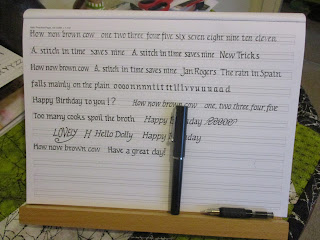 How now brown cow one two three four five six seven eight nine ten eleven
A stitch in time saves nine A stitch in time saves nine New Tricks
How now brown cow A stitch in time saves nine Jan Rogers The rain in Spain
falls mainly on the plain
Happy Birthday to you!? How now brown cow one two three four five
Too many cooks spoil the broth Happy Birthday
LOVELY H Hello Dolly Happy Birthday
How now brown cow Have a great day!